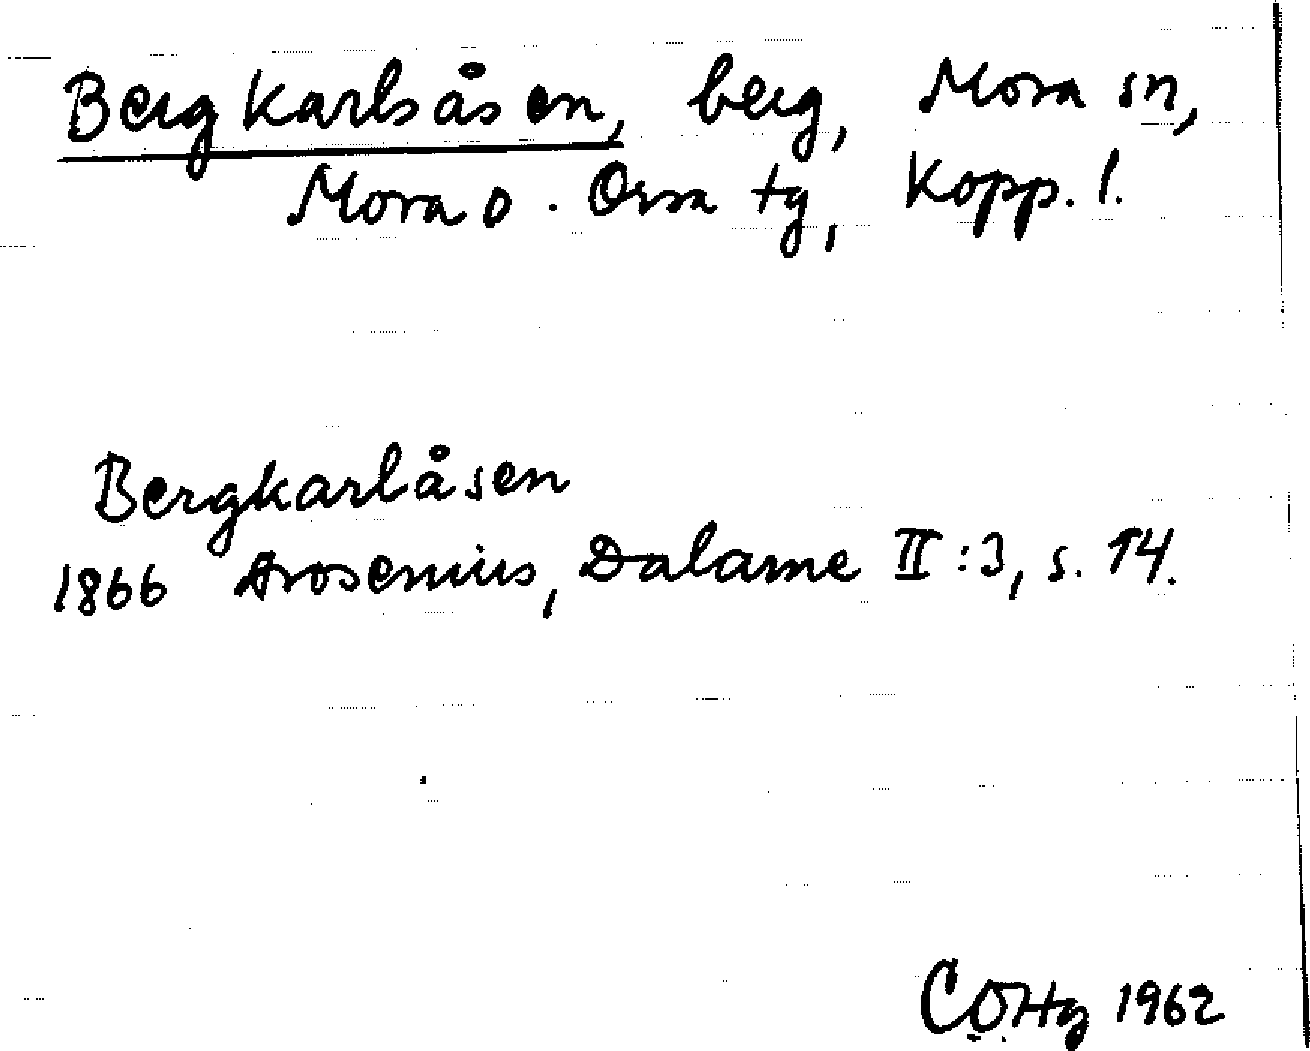 Bergkarlsåsen, berg, Mora sn,
Mora o. Orsa tg, Kopp. l.
Bergkarlåsen
1866 Arosenius, Dalarne II:3, s. 14.
1962